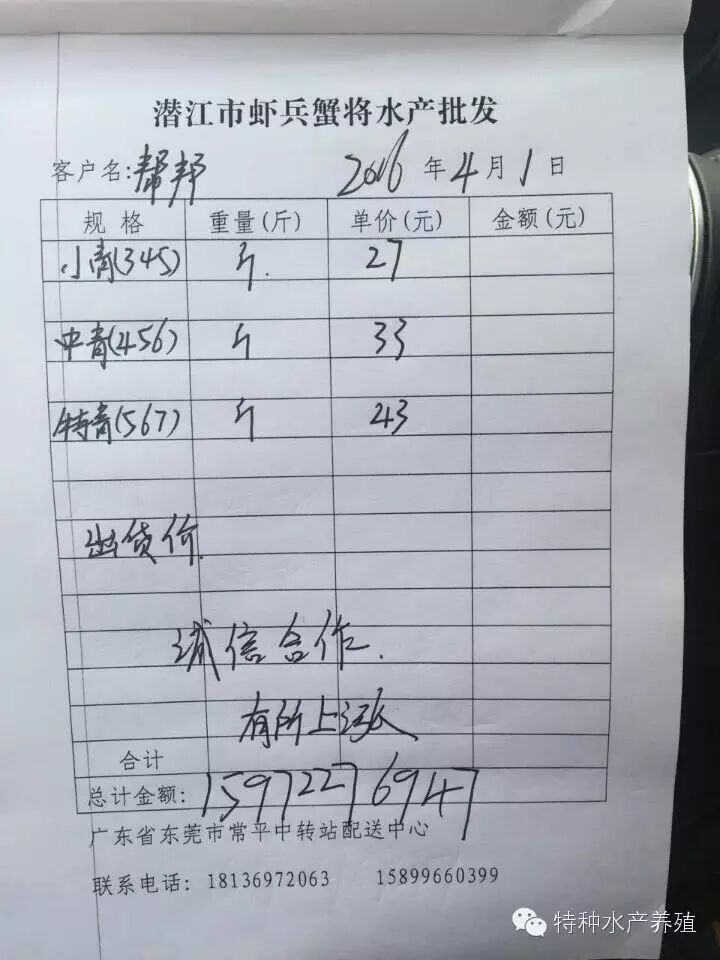 潜江市虾兵蟹将水产批发
客户名:帮邦 2016年4月1日
规格 重量(斤) 单价(元) 金额(元)
小青(345) 斤. 27
中青(456) 斤 33
特青(567) 斤 43
出货价.
诚信合作.
有所上涨
合计
总计金额: 15972276947
广东省东莞市常平中转站配送中心
联系电话: 18136972063 15899660399
特种水产养殖